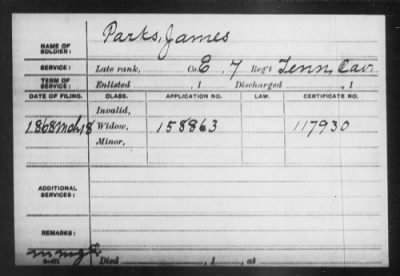 NAME OF SOLDIER: Parks, James
SERVICE: Late rank, Co. E, 7 Reg't Tenn. Cav.
TERM OF SERVICE: Enlisted , 1 Discharged , 1
DATE OF FILING. CLASS. APPLICATION NO. LAW. CERTIFICATE NO.
Invalid,
1868 Mch 18 Widow, 158863 117930
Minor,
ADDITIONAL SERVICES:
REMARKS:
Died , 1 , at